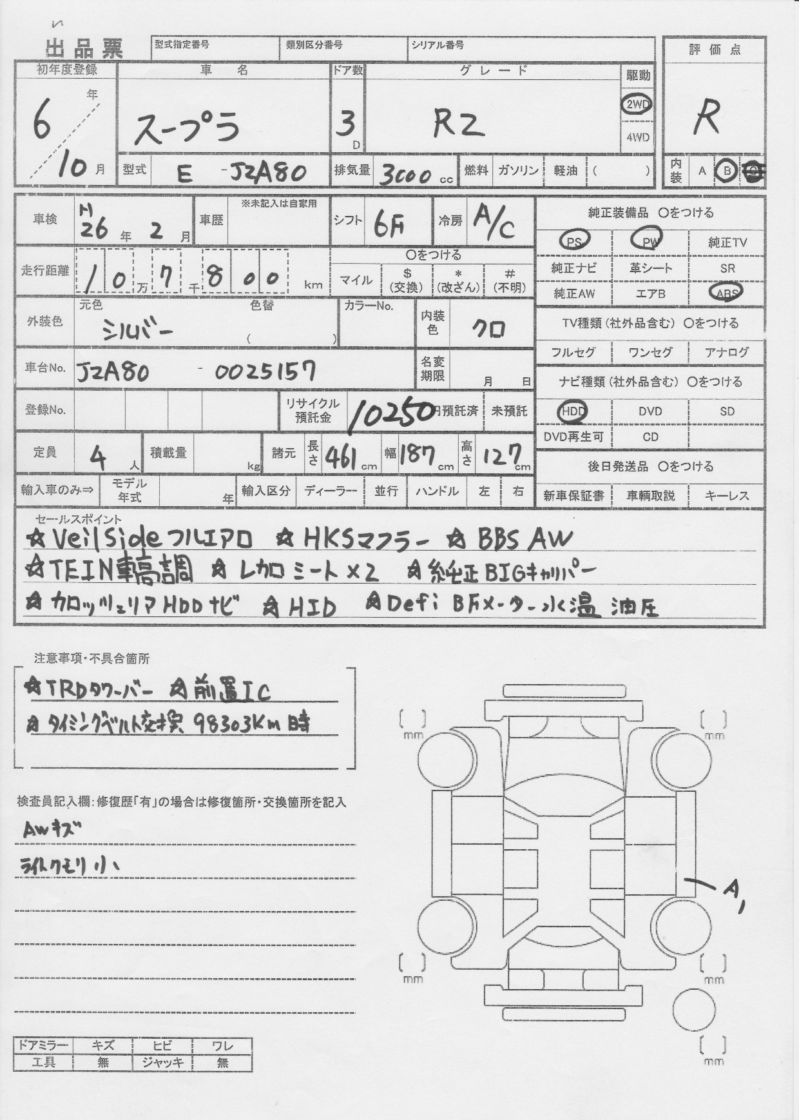 出品票 型式指定番号 類別区分番号 シリアル番号
初年度登録 車名 ドア数 グレード 駆動 評価点
6年 スープラ 3D RZ 2WD R
4WD
10月 型式 E -JZA80 排気量 3000cc 燃料 ガソリン 軽油 ( ) 内装 A B
車検 H26年 2月 車歴 ※未記入は自家用 シフト 6F 冷房 A/C 純正装備品 〇をつける
PS PW 純正TV
走行距離 10万7千800km 〇をつける 純正ナビ 革シート SR
マイル $(交換) *(改ざん) #(不明) 純正AW エアB ABS
外装色 元色 シルバー 色替 ( ) カラーNo. 内装色 クロ TV種類(社外品含む) 〇をつける
フルセグ ワンセグ アナログ
車台No. JZA80 - 0025157 名変期限 月 日 ナビ種類(社外品含む) 〇をつける
登録No. リサイクル預託金 10250円預託済 未預託 HDD DVD SD
DVD再生可 CD
定員 4人 積載量 kg 諸元 長さ 461cm 幅 187cm 高さ 127cm 後日発送品 〇をつける
輸入車のみ⇒ モデル年式 年 輸入区分 ディーラー 並行 ハンドル 左 右 新車保証書 車輌取説 キーレス
セールスポイント
☆VeilSideフルエアロ ☆HKSマフラー ☆BBS AW
☆TEIN車高調 ☆レカロシート×2 ☆純正BIGキャリパー
☆カロッツェリアHDDナビ ☆HID ☆Defi BFメーター水温 油圧
注意事項・不具合箇所
☆TRDタワーバー ☆前置IC
☆タイミングベルト交換 98303Km時
検査員記入欄:修復歴「有」の場合は修復箇所・交換箇所を記入
AWキズ
ライトクモリ小
[ ] mm [ ] mm
A1
[ ] mm [ ] mm
[ ] mm
ドアミラー キズ ヒビ ワレ
工具 無 ジャッキ 無